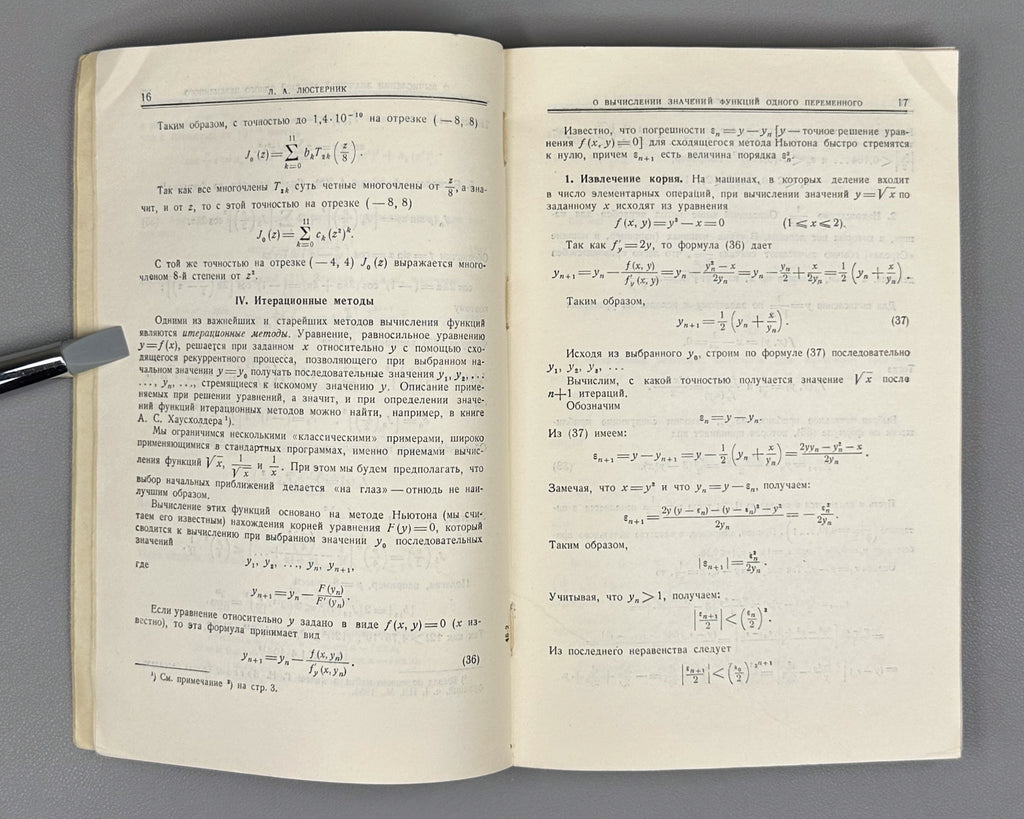 16
Л. А. ЛЮСТЕРНИК
Таким образом, с точностью до 1,4·10⁻¹⁰ на отрезке (—8, 8)
J₀(z) = ∑_{k=0}^{11} bₖT₂ₖ(z/8).
Так как все многочлены T₂ₖ суть четные многочлены от z/8, а зна-
чит, и от z, то с этой точностью на отрезке (—8, 8)
J₀(z) = ∑_{k=0}^{11} cₖ(z²)ᵏ.
С той же точностью на отрезке (—4, 4) J₀(z) выражается много-
членом 8-й степени от z².
IV. Итерационные методы
Одними из важнейших и старейших методов вычисления функций
являются итерационные методы. Уравнение, равносильное уравнению
y=f(x), решается при заданном x относительно y с помощью схо-
дящегося рекуррентного процесса, позволяющего при выбранном на-
чальном значении y=y₀ получать последовательные значения y₁, y₂, ...
..., yₙ, ..., стремящиеся к искомому значению y. Описание приме-
няемых при решении уравнений, а значит, и при определении значе-
ний функций итерационных методов можно найти, например, в книге
А. С. Хаусхолдера¹).
Мы ограничимся несколькими «классическими» примерами, широко
применяющимися в стандартных программах, именно приемами вычис-
ления функций √x, 1/√x и 1/x. При этом мы будем предполагать, что
выбор начальных приближений делается «на глаз» — отнюдь не наи-
лучшим образом.
Вычисление этих функций основано на методе Ньютона (мы счи-
таем его известным) нахождения корней уравнения F(y)=0, который
сводится к вычислению при выбранном значении y₀ последовательных
значений
y₁, y₂, ..., yₙ, yₙ₊₁,
где
yₙ₊₁ = yₙ − F(yₙ)/F′(yₙ).
Если уравнение относительно y задано в виде f(x, y)=0 (x из-
вестно), то эта формула принимает вид
yₙ₊₁ = yₙ − f(x, yₙ)/f′_y(x, yₙ). (36)
¹) См. примечание ²) на стр. 3.
О ВЫЧИСЛЕНИИ ЗНАЧЕНИЙ ФУНКЦИЙ ОДНОГО ПЕРЕМЕННОГО
17
Известно, что погрешности εₙ = y — yₙ [y — точное решение урав-
нения f(x, y)=0] для сходящегося метода Ньютона быстро стремятся
к нулю, причем εₙ₊₁ есть величина порядка εₙ².
1. Извлечение корня. На машинах, в которых деление входит
в число элементарных операций, при вычислении значений y=√x по
заданному x исходят из уравнения
f(x, y) = y² — x = 0 (1 ⩽ x ⩽ 2).
Так как f′_y = 2y, то формула (36) дает
yₙ₊₁ = yₙ − f(x, y)/f′_y(x, y) = yₙ − (yₙ² − x)/2yₙ = yₙ − yₙ/2 + x/2yₙ = 1/2 (yₙ + x/yₙ).
Таким образом,
yₙ₊₁ = 1/2 (yₙ + x/yₙ). (37)
Исходя из выбранного y₀, строим по формуле (37) последовательно
y₁, y₂, y₃, ...
Вычислим, с какой точностью получается значение √x после
n+1 итераций.
Обозначим
εₙ = y — yₙ.
Из (37) имеем:
εₙ₊₁ = y — yₙ₊₁ = y — 1/2 (yₙ + x/yₙ) = (2yyₙ — yₙ² — x)/2yₙ.
Замечая, что x=y² и что yₙ = y — εₙ, получаем:
εₙ₊₁ = (2y(y — εₙ) — (y — εₙ)² — y²)/2yₙ = — εₙ²/2yₙ.
Таким образом,
|εₙ₊₁| = εₙ²/2yₙ.
Учитывая, что yₙ > 1, получаем:
|εₙ₊₁/2| < (εₙ/2)².
Из последнего неравенства следует
|εₙ₊₁/2| < (ε₀/2)^{2ⁿ⁺¹}